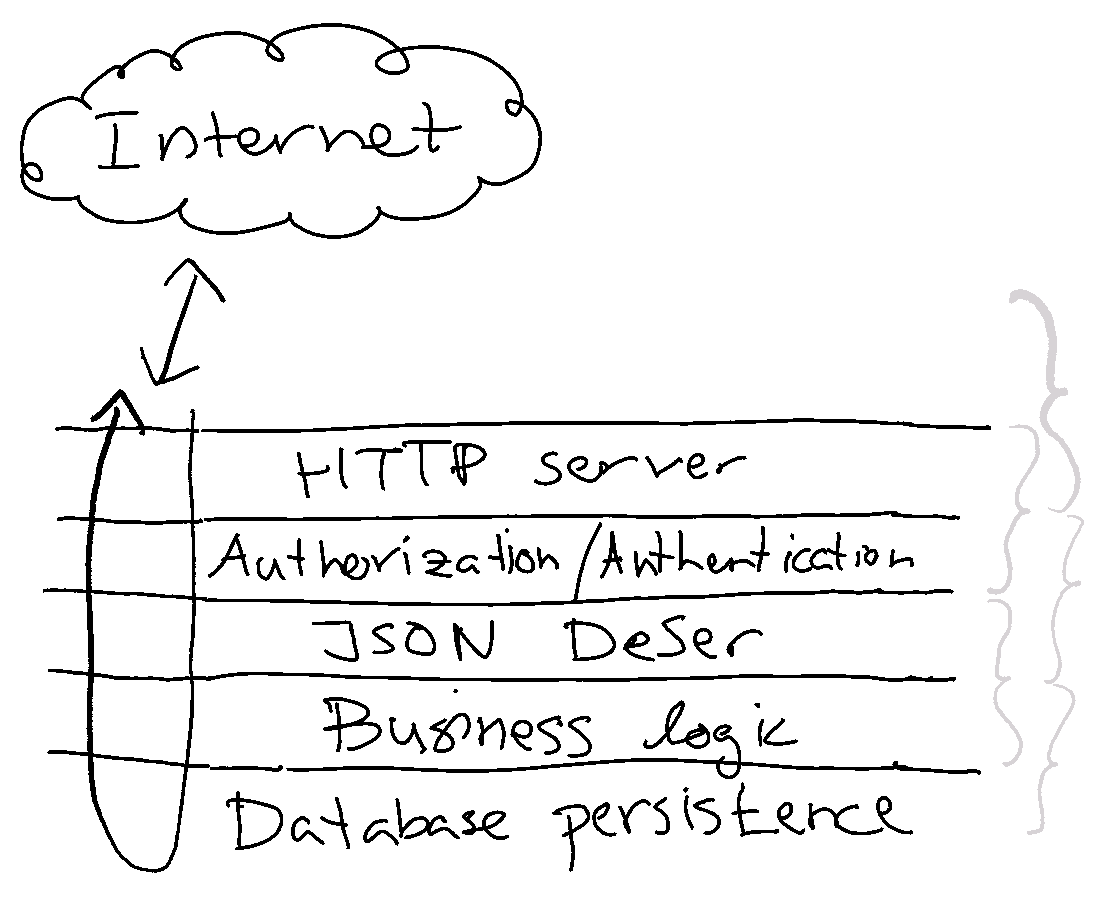 Internet
HTTP server
Authorization/Authentication
JSON DeSer
Business logic
Database persistence